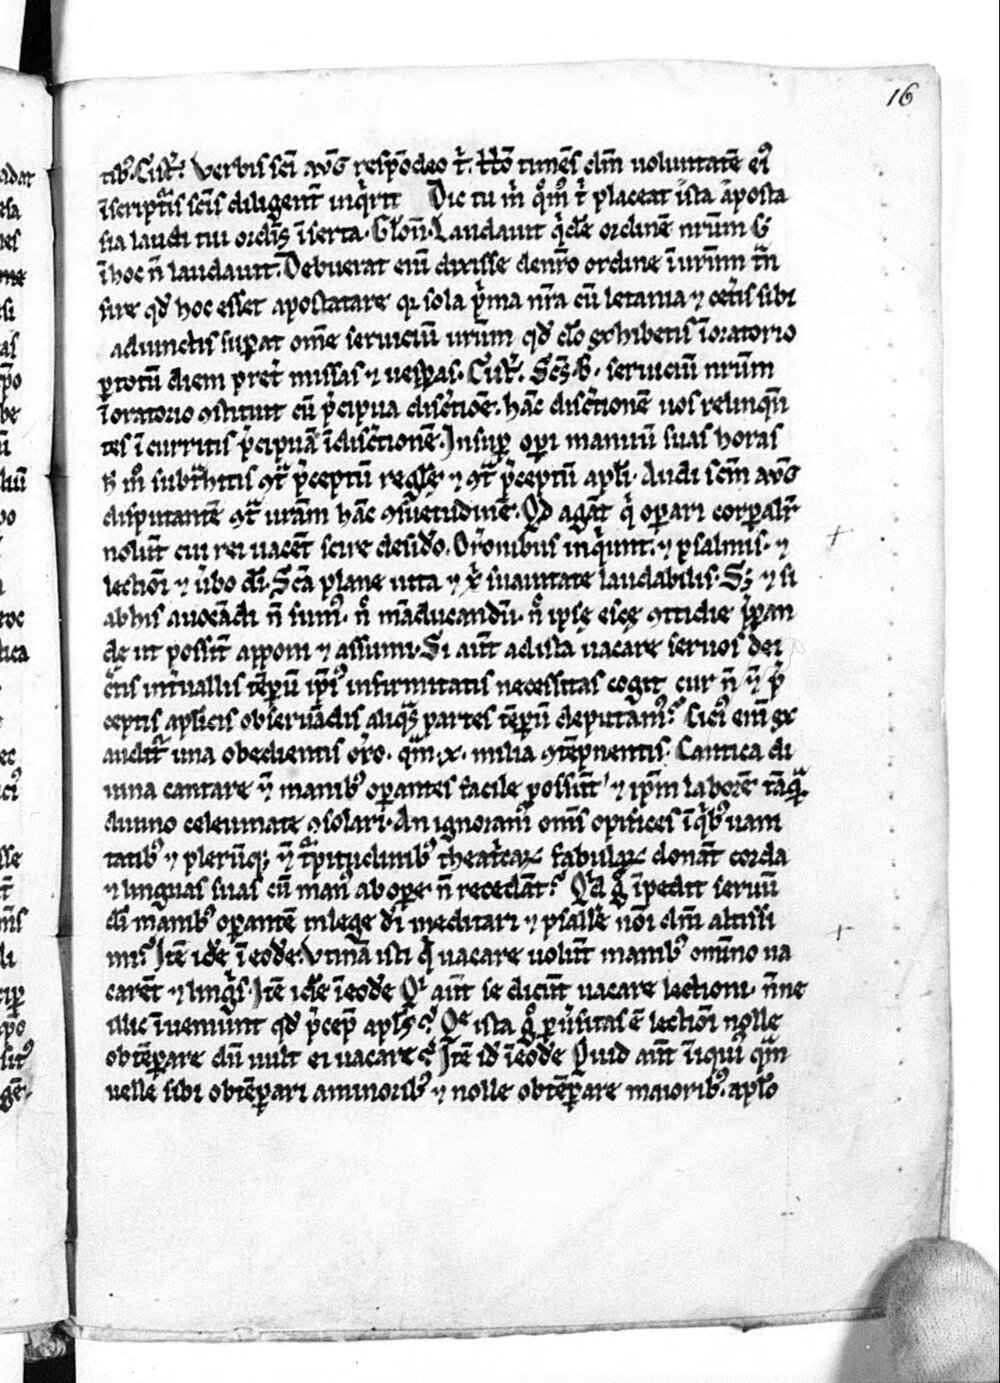 16
tib᷒. Cist᷑. Verbis sc̄i aug̅ respōdeo t᷑. Ho᷑ timēs dm̄ voluntatē ei᷒
īscript᷑is sc̄is diligent̄ inq̇rit Dic tu m̄ q̊m᷒ t᷑ placeat ista aposta
sia laudi tui ordis̄ īserta. Clōn᷑. Laudavit q̇dē ordinē nr̄um s̄
ī hoc n̄ laudavit. Debuerat eni᷑ dixisse de nr̄o ordine ī ur̄um t᷑n
sire qd̄ hoc esset apostatare q᷑ sola ṗma nr̄a cū letania ⁊ cet᷑is sibi
adiunctis suꝑat om̄e serviciū ur̄um qd̄ d̄o exhibetis ī oratorio
ꝑ totū diem pret᷑ missas ⁊ vesꝑas. Cist᷑. Sc̄s. b̄. serviciū nr̄um
ī oratorio ꝯstituit cū ṗcipua discr̄tiōe. hāc discr̄tionē vos relinqū
tes īcurritis ṗcipuā īdiscr̄tionē. Insuꝑ oꝑi manuū suas horas
n̄ m᷒ subt᷑hitis ꝯt᷑ ṗceptū regl̄ę ⁊ ꝯt᷑ ṗceptū apl̄i. Audi sc̄m aug̅
disputantē ꝯt᷑ ur̄am hāc ꝯsuetudinē. Qd̄ agāt q̇ oꝑari corꝑalit᷑
nolūt cui rei vacēt scire desid᷑o. Or̄onibus inq̇unt. ⁊ psalmis. ⁊
lectiōi ⁊ v᷑bo dī. Sc̄a plane vita ⁊ x̄ suavitate laudabilis. Sꝫ ⁊ si
ab his avocādi n̄ sum᷒. n̄ māducandū. n̄ ipsę escę ꝯtidie p̄ꝑan
dę ut possīt apponi ⁊ assumi. Si aūt ad ista vacare servos dei
c̄tis int᷑vallis tēꝑū ip̄i᷒ infirmitatis necessitas cogit cur n̄ ⁊ p̄
ceptis apl̄icis observādis aliqˢ partes tēꝑū deputam᷒? Cici᷒ eni᷑ ex
audit᷑ una obedientis or̄o. qm̄ .x. milia ꝯtēpnentis. Cantica di
vina cantare ⁊ manib᷒ oꝑantes facile possūt ⁊ ip̄m laborē tāq᷑
divino celeumate ꝯsolari. An ignoram᷒ om̄s opifices īq̇b᷒ vani
tatib᷒ ⁊ plerūq; ⁊ t᷑pitudinib᷒ theat᷑caꝝ fabulaꝝ donāt corda
⁊ linguas suas cū man᷒ ab opere n̄ recedāt? Qd̄ g̊ īpedit servū
dī manib᷒ oꝑantē in lege dn̄i meditari ⁊ psallē nōi dn̄i altissi
mi? Itē idē ī eodē. Utinā isti q̇ vacare volūt manib᷒ omīno va
carēt ⁊ linḡis. Itē idē ī eodē Qi aūt se dicūt vacare lectioni. n̄ne
illic īveniunt qd̄ p̄cep̄ apl̄s? Qe᷑ ista g̊ ꝑv᷑sitas ē lectiōi nolle
obtēꝑare dū vult ei vacare? Itē id̄ ī eodē Quid aūt īiqui᷒ qm̄
velle sibi obtēꝑari a minorib᷒ ⁊ nolle obtēꝑare maiorib᷒. apl̄o